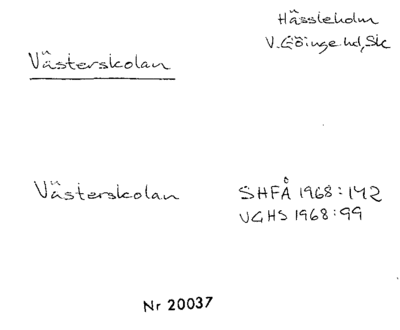 Hässleholm
V. Göinge hd, Sk
Västerskolan
Västerskolan
SHFÅ 1968:142
VGHS 1968:99
Nr 20037